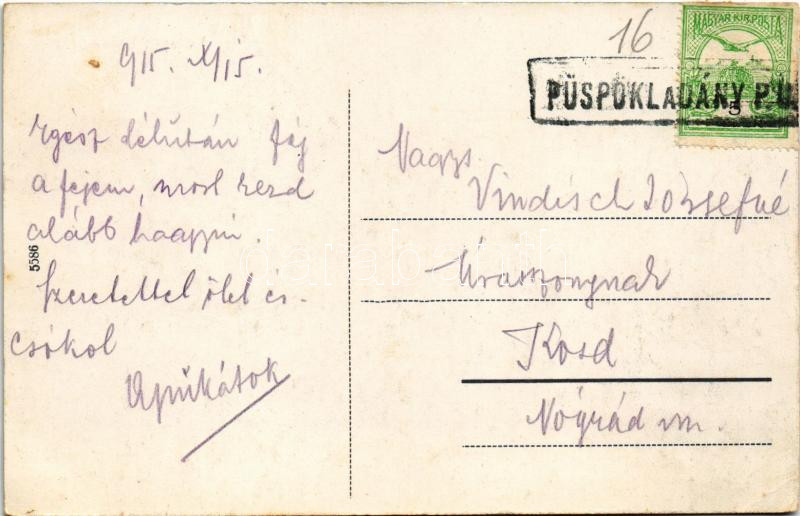 915. XI/15.
Egész délután fáj
a fejem, most kezd
alább hagyni.
Szeretettel ölel és
csókol
Apukátok
5586
16
PÜSPÖKLADÁNY P.U.
MAGYAR KIR. POSTA
5
Nagys.
Vindisch Józsefné
Úrasszonynak
Kosd
Nógrád m.